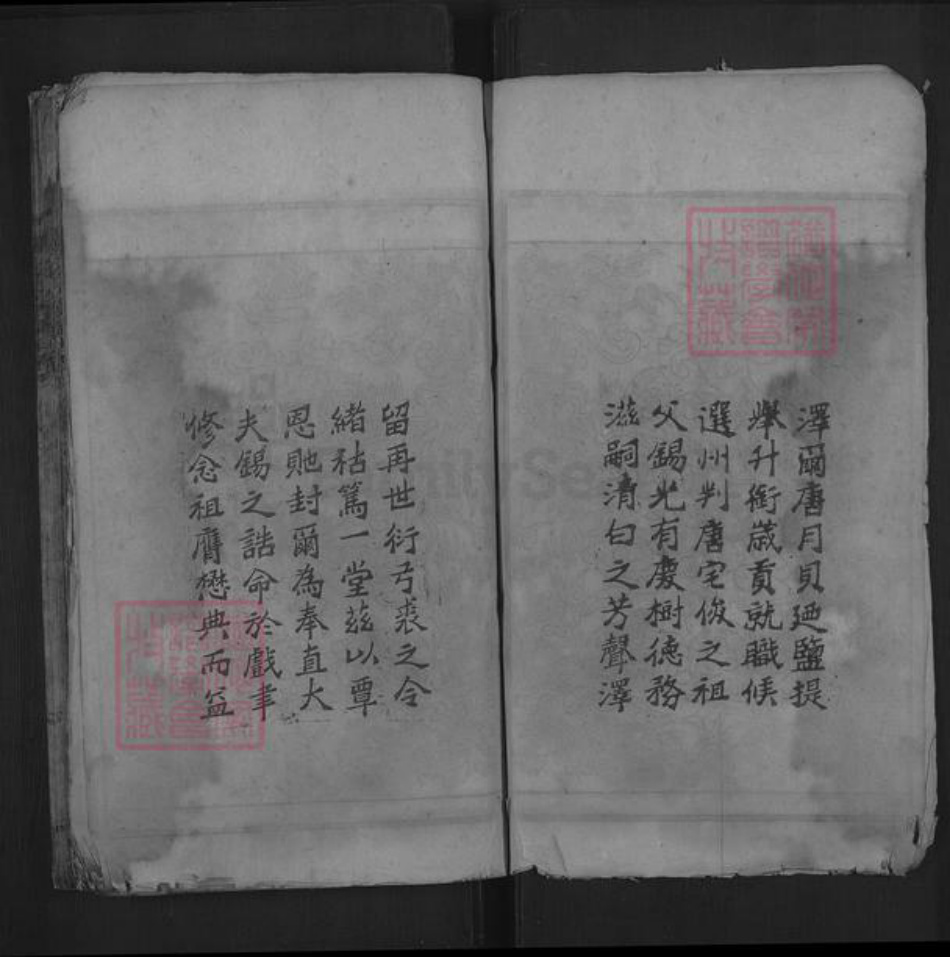 澤爾唐月貝廼鹽提
舉升銜歲貢就職候
選州判唐宅俊之祖
父錫光有慶樹德務
滋嗣清白之芳聲澤
留再世衍弓裘之令
緒祜篤一堂茲以覃
恩貤封爾為奉直大
夫錫之誥命於戲聿
修念祖膺懋典而益